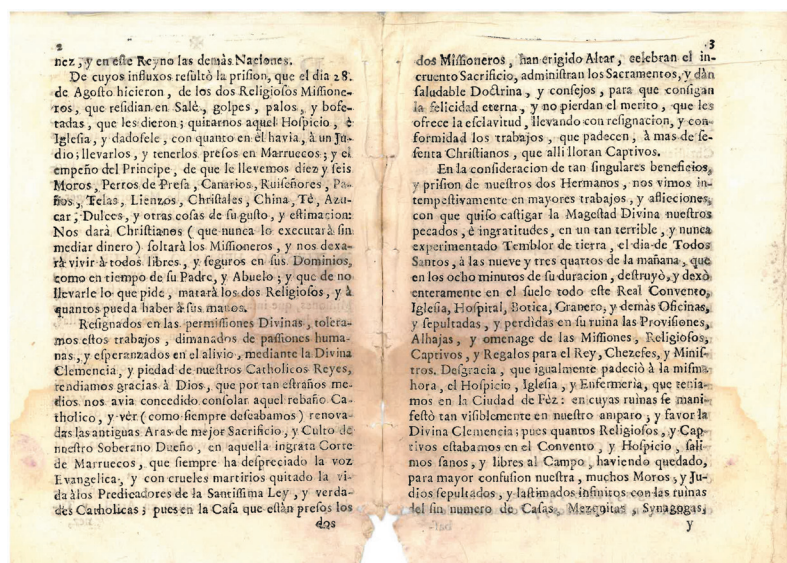 2
nez, y en este Reyno las demàs Naciones.
De cuyos influxos resultò la prision, que el dia 28.
de Agosto hicieron, de los dos Religiosos Missione-
ros, que residian en Salè, golpes, palos, y bofe-
tadas, que les dieron; quitarnos aquel Hospicio, è
Iglesia, y dadosele, con quanto en èl havia, à un Ju-
dio; llevarlos, y tenerlos presos en Marruecos; y el
empeño del Principe, de que le llevemos diez y seis
Moros, Perros de Presa, Canarios, Ruiseñores, Pa-
ños, Telas, Lienzos, Christales, China, Tè, Azu-
car, Dulces, y otras cosas de su gusto, y estimacion:
Nos darà Christianos (que nunca lo executarà sin
mediar dinero) soltarà los Missioneros, y nos dexa-
rà vivir à todos libres, y seguros en sus Dominios,
como en tiempo de su Padre, y Abuelo; y que de no
llevarle lo que pide, matarà los dos Religiosos, y à
quantos pueda haber à sus manos.
Resignados en las permissiones Divinas, tolera-
mos estos trabajos, dimanados de passiones huma-
nas, y esperanzados en el alivio, mediante la Divina
Clemencia, y piedad de nuestros Catholicos Reyes,
rendiamos gracias à Dios, que por tan estraños me-
dios nos avia concedido consolar aquel rebaño Ca-
tholico, y vèr (como siempre deseabamos) renova-
das las antiguas Aras de mejor Sacrificio, y Culto de
nuestro Soberano Dueño, en aquella ingrata Corte
de Marruecos, que siempre ha despreciado la voz
Evangelica, y con crueles martirios quitado la vi-
da àlos Predicadores de la Santissima Ley, y verda-
des Catholicas; pues en la Casa que estàn presos los
dos
3
dos Missioneros, han erigido Altar, celebran el in-
cruento Sacrificio, administran los Sacramentos, y dàn
saludable Doctrina, y consejos, para que consigan
la felicidad eterna, y no pierdan el merito, que les
ofrece la esclavitud, llevando con resignacion, y con-
formidad los trabajos, que padecen, à mas de se-
senta Christianos, que alli lloran Captivos.
En la consideracion de tan singulares beneficios,
y prision de nuestros dos Hermanos, nos vimos in-
tempestivamente en mayores trabajos, y aflicciones,
con que quiso castigar la Magestad Divina nuestros
pecados, è ingratitudes, en un tan terrible, y nunca
experimentado Temblor de tierra, el dia de Todos
Santos, à las nueve y tres quartos de la mañana, que
en los ocho minutos de su duracion, destruyò, y dexò
enteramente en el suelo todo este Real Convento,
Iglesia, Hospital, Botica, Granero, y demàs Oficinas,
y sepultadas, y perdidas en su ruina las Provisiones,
Alhajas, y omenage de las Missiones, Religiosos,
Captivos, y Regalos para el Rey, Chezefes, y Minis-
tros. Desgracia, que igualmente padeciò à la misma
hora, el Hospicio, Iglesia, y Enfermeria, que tenia-
mos en la Ciudad de Fèz: en cuyas ruinas se mani-
festò tan visiblemente en nuestro amparo, y favor la
Divina Clemencia; pues quantos Religiosos, y Cap-
tivos estabamos en el Convento, y Hospicio, sali-
mos sanos, y libres al Campo, haviendo quedado,
para mayor confusion nuestra, muchos Moros, y Ju-
dios sepultados, y lastimados infinitos con las ruinas
del sin numero de Casas, Mezquitas, Synagogas,
y